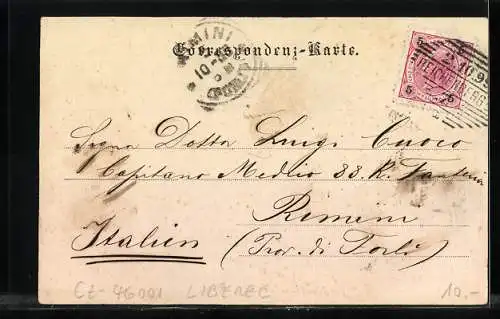 RIMINI
Correspondenz-Karte.
10
5
5
5
REICHENBERG
Signor Dotto Luigi Cuoco
Capitano Medico 33. R. Fanteria
Rimini
Italien (Prov. di Forlì)
CZ-46001 LIBEREC 10.-